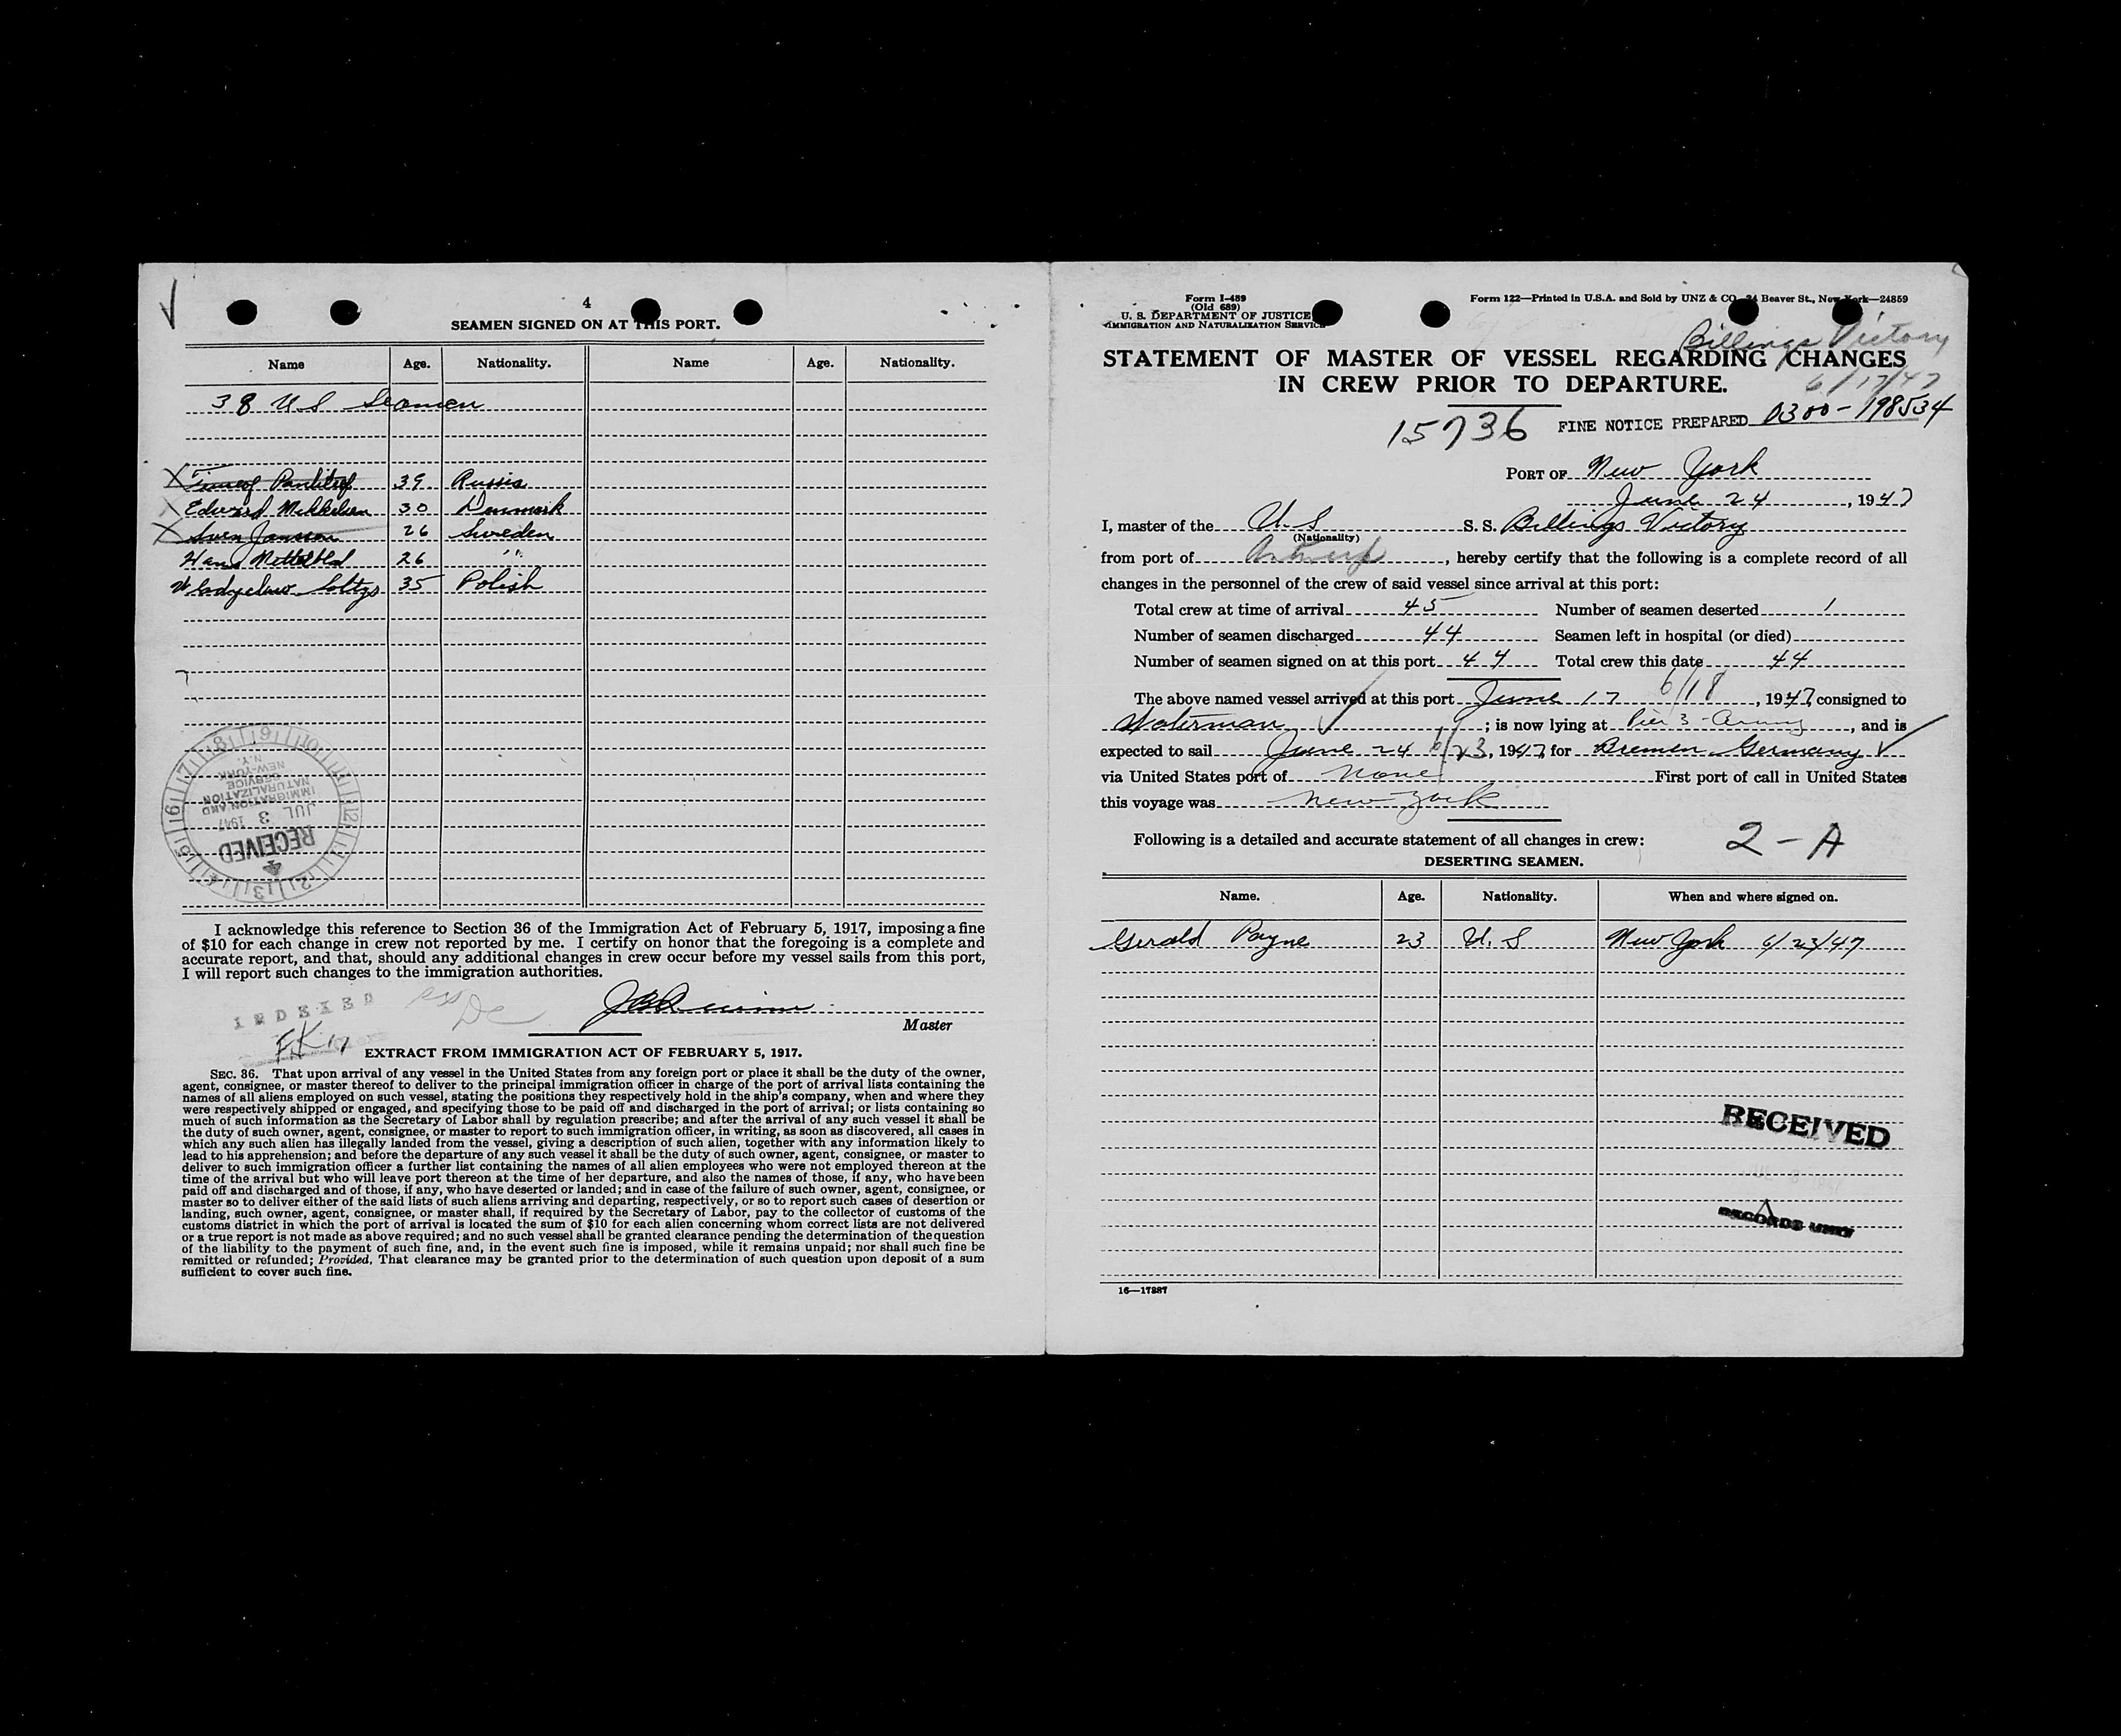 4
SEAMEN SIGNED ON AT THIS PORT.
Name Age. Nationality. Name Age. Nationality.
38 US Seamen
39 Russia
Edward Mikkelsen 30 Denmark
Sven Jansson 26 Sweden
Hans 26 "
35 Polish
IMMIGRATION AND
NATURALIZATION
SERVICE
NEW-YORK
N.Y.
JUL 3 1947
RECEIVED
I acknowledge this reference to Section 36 of the Immigration Act of February 5, 1917, imposing a fine
of $10 for each change in crew not reported by me. I certify on honor that the foregoing is a complete and
accurate report, and that, should any additional changes in crew occur before my vessel sails from this port,
I will report such changes to the immigration authorities.
INDEXED
Master
EXTRACT FROM IMMIGRATION ACT OF FEBRUARY 5, 1917.
SEC. 36. That upon arrival of any vessel in the United States from any foreign port or place it shall be the duty of the owner,
agent, consignee, or master thereof to deliver to the principal immigration officer in charge of the port of arrival lists containing the
names of all aliens employed on such vessel, stating the positions they respectively hold in the ship's company, when and where they
were respectively shipped or engaged, and specifying those to be paid off and discharged in the port of arrival; or lists containing so
much of such information as the Secretary of Labor shall by regulation prescribe; and after the arrival of any such vessel it shall be
the duty of such owner, agent, consignee, or master to report to such immigration officer, in writing, as soon as discovered, all cases in
which any such alien has illegally landed from the vessel, giving a description of such alien, together with any information likely to
lead to his apprehension; and before the departure of any such vessel it shall be the duty of such owner, agent, consignee, or master to
deliver to such immigration officer a further list containing the names of all alien employees who were not employed thereon at the
time of the arrival but who will leave port thereon at the time of her departure, and also the names of those, if any, who have been
paid off and discharged and of those, if any, who have deserted or landed; and in case of the failure of such owner, agent, consignee, or
master so to deliver either of the said lists of such aliens arriving and departing, respectively, or so to report such cases of desertion or
landing, such owner, agent, consignee, or master shall, if required by the Secretary of Labor, pay to the collector of customs of the
customs district in which the port of arrival is located the sum of $10 for each alien concerning whom correct lists are not delivered
or a true report is not made as above required; and no such vessel shall be granted clearance pending the determination of the question
of the liability to the payment of such fine, and, in the event such fine is imposed, while it remains unpaid; nor shall such fine be
remitted or refunded; Provided, That clearance may be granted prior to the determination of such question upon deposit of a sum
sufficient to cover such fine.
Form I-489
(Old 689)
U. S. DEPARTMENT OF JUSTICE
IMMIGRATION AND NATURALIZATION SERVICE
Form 122—Printed in U.S.A. and Sold by UNZ & CO., 24 Beaver St., New York—24859
Billings Victory
STATEMENT OF MASTER OF VESSEL REGARDING CHANGES
IN CREW PRIOR TO DEPARTURE.
6/17/47
15736 FINE NOTICE PREPARED 0300-198534
PORT OF New York
June 24, 1947
I, master of the U.S S. S. Billings Victory
(Nationality)
from port of Antwerp, hereby certify that the following is a complete record of all
changes in the personnel of the crew of said vessel since arrival at this port:
Total crew at time of arrival 45 Number of seamen deserted 1
Number of seamen discharged 44 Seamen left in hospital (or died)
Number of seamen signed on at this port 44 Total crew this date 44
The above named vessel arrived at this port June 17 6/18, 1947, consigned to
Waterman; is now lying at Pier 3 - Army, and is
expected to sail June 24 6/23, 1947, for Bremen Germany
via United States port of None First port of call in United States
this voyage was New York
Following is a detailed and accurate statement of all changes in crew: 2-A
DESERTING SEAMEN.
Name. Age. Nationality. When and where signed on.
Gerald Payne 23 U.S New York 6/23/47
RECEIVED
RECORDS UNIT
16—17887